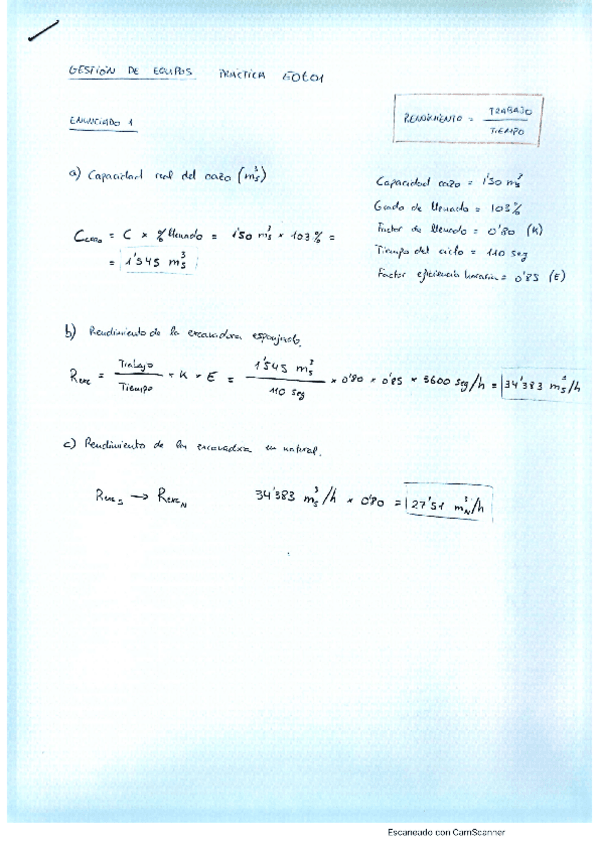 GESTIÓN DE EQUIPOS PRÁCTICA EOL01
ENUNCIADO 1
RENDIMIENTO = TRABAJO / TIEMPO
a) Capacidad real del cazo (m³s)
Capacidad cazo = 1'50 m³s
Grado de llenado = 103%
Factor de llenado = 0'80 (K)
Tiempo del ciclo = 110 seg
Factor eficiencia horaria = 0'85 (E)
Ccazo = C × % llenado = 1'50 m³s × 103% =
= 1'545 m³s
b) Rendimiento de la excavadora esponjado.
Rexc = Trabajo / Tiempo × K × E = 1'545 m³s / 110 seg × 0'80 × 0'85 × 3600 seg/h = 34'383 m³s/h
c) Rendimiento de la excavadora en natural.
Rexc S → Rexc N 34'383 m³s/h × 0'80 = 27'51 m³N/h
Escaneado con CamScanner